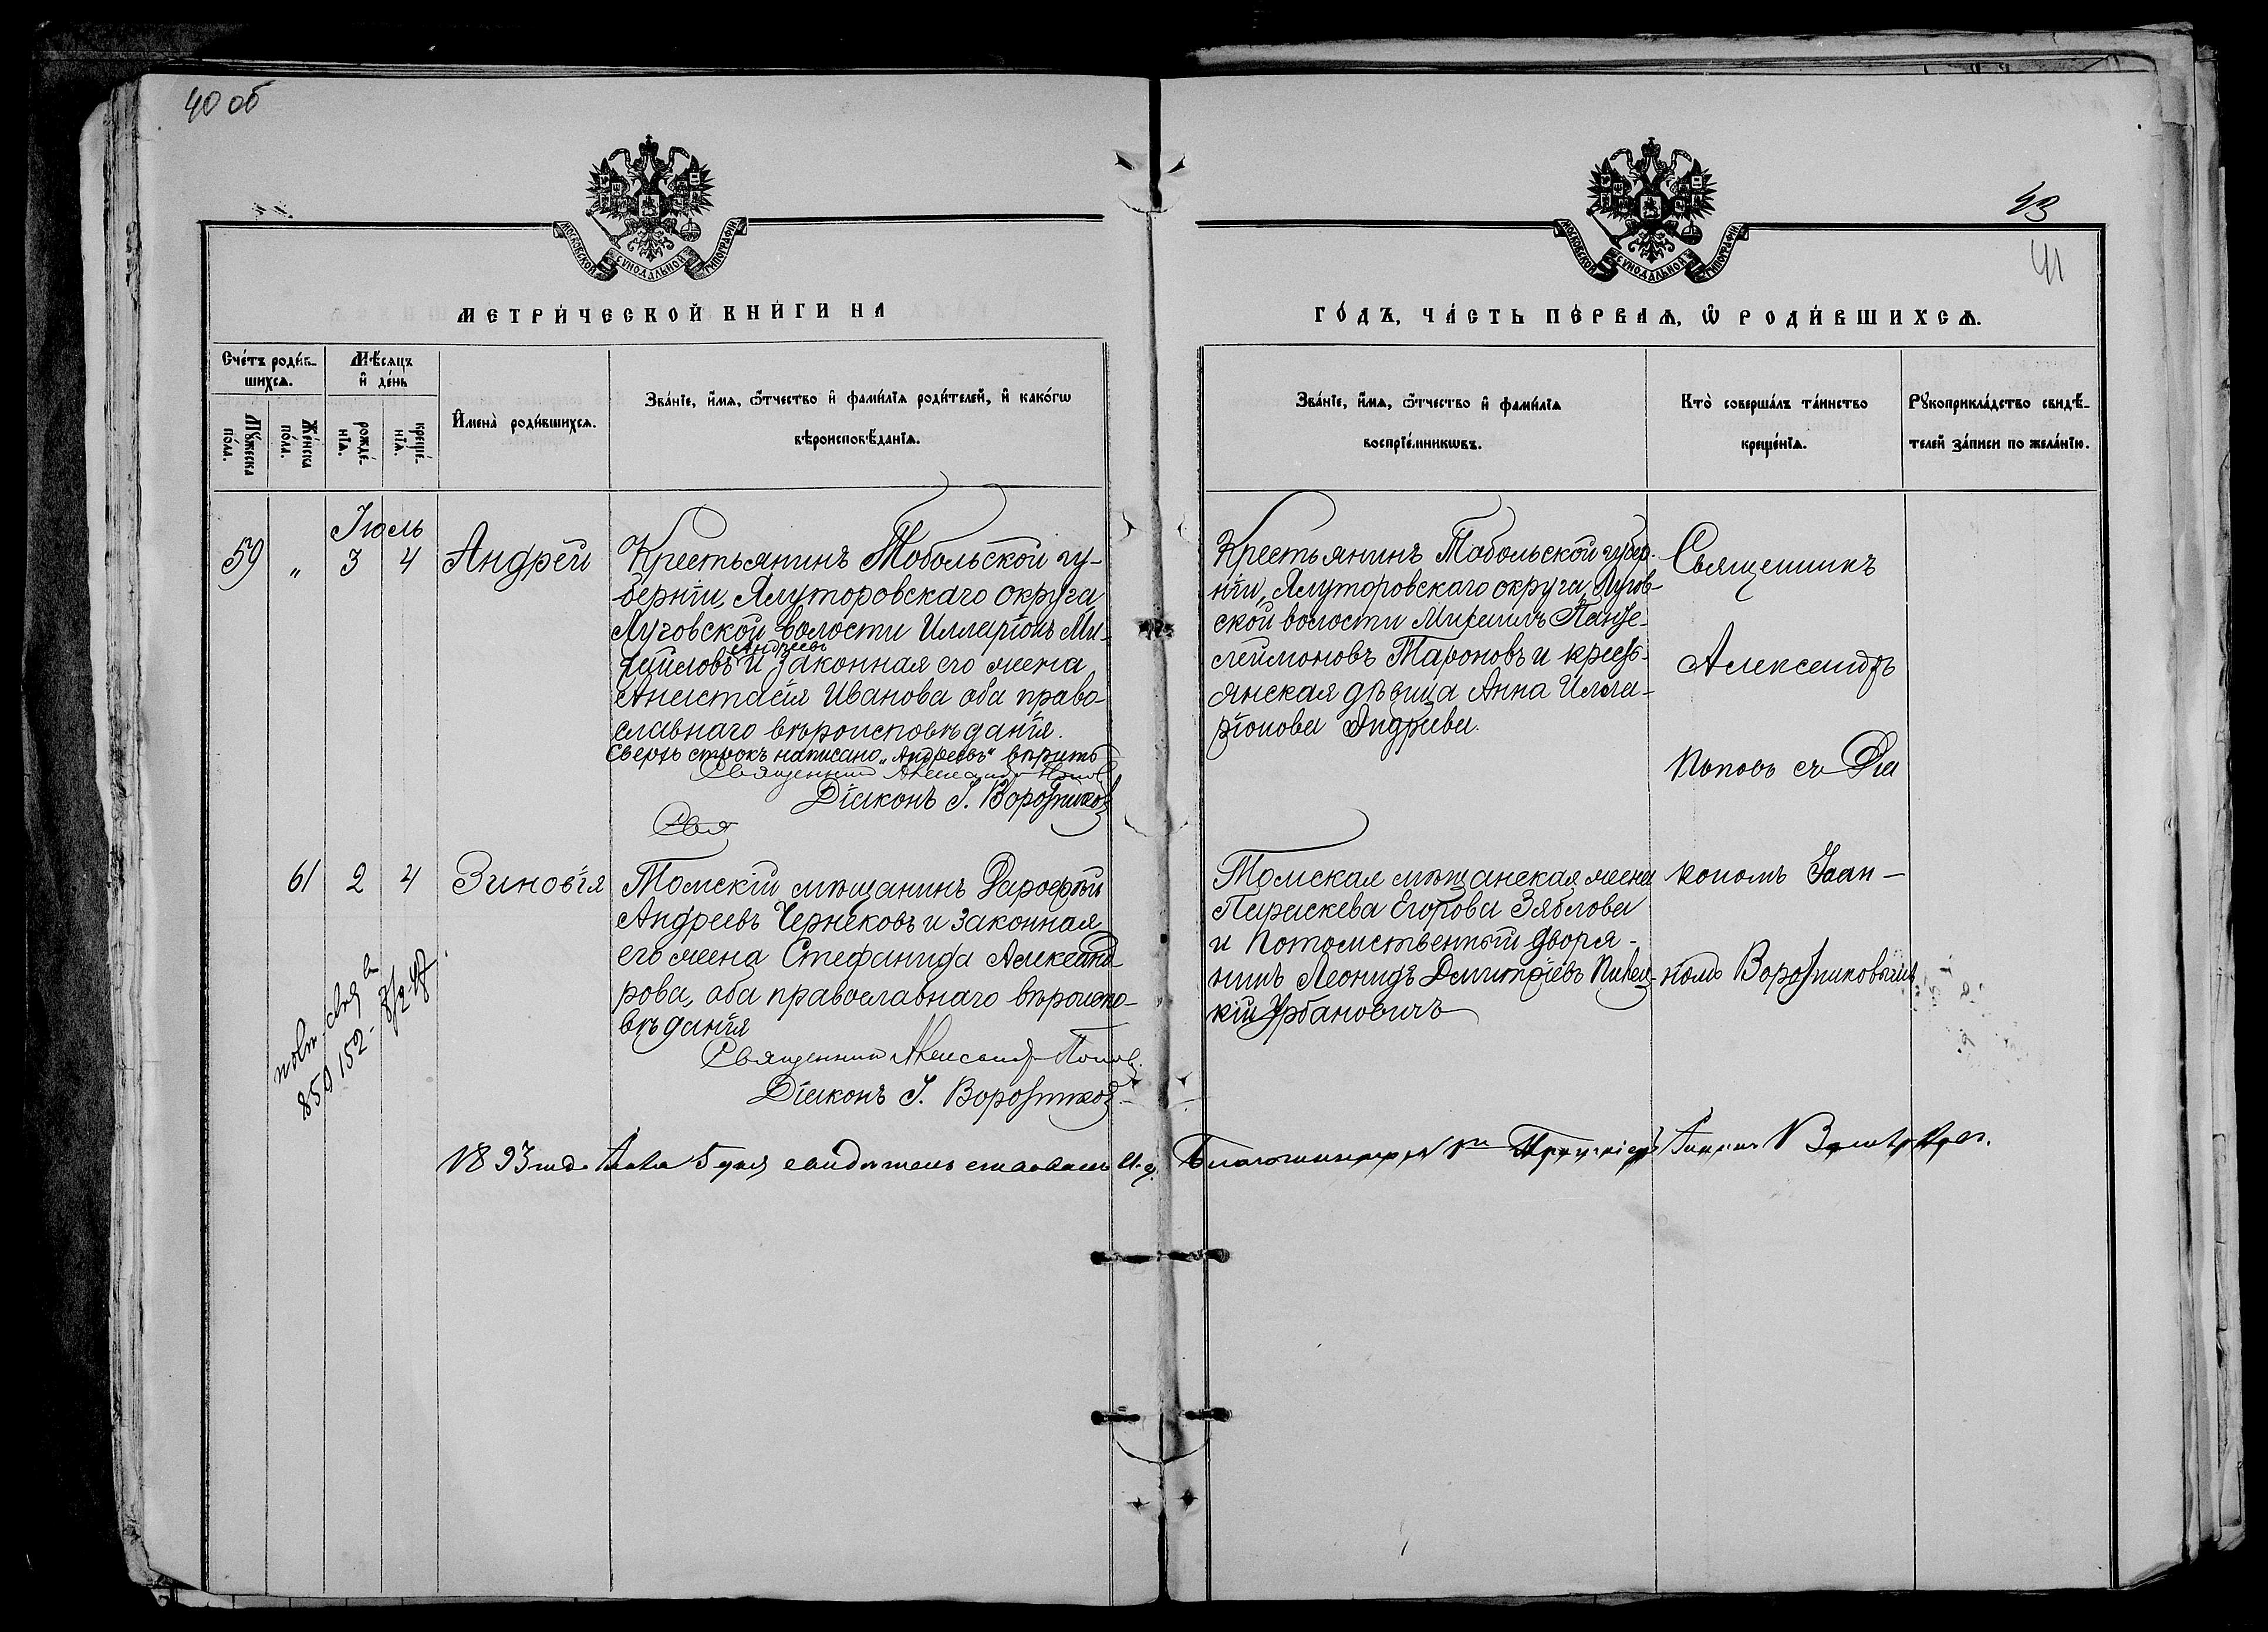 40 об
МОСКОВСКОЙ СѴНОДАЛЬНОЙ ТИПОГРАФІИ
МЕТРИ́ЧЕСКОЙ КНИ́ГИ НА
Сче́тъ роди́в-
шихсѧ.
Мѣ́сяцъ
и҆ де́нь
Мꙋ́жеска
по́ла.
Же́нска
по́ла.
рожде́-
нїѧ.
креще́-
нїѧ.
И҆мена̀ роди́вшихсѧ.
Зва́нїе, и҆́мѧ, ѻ҆́тчество и҆ фами́лїѧ роди́телей, и҆ како́гѡ
вѣроисповѣ́данїѧ.
Іюль
59 „ 3 4 Андрей
Крестьянинъ Тобольской гу-
берніи, Ялуторовскаго округа
Луговской волости Илларіонъ Ми-
Андреевъ
хайловъ и законная его жена
Анастасія Иванова оба право-
славнаго вѣроисповѣданія.
Сверхъ строкъ написано „Андреевъ“ вѣрить
Священникъ Александръ Попов
Діаконъ І. Воротников
Свя
61 2 4 Зиновія
Томскій мѣщанинъ Дорофей
Андреевъ Черняковъ и законная
его жена Стефанида Александ-
рова, оба православнаго вѣроиспо-
вѣданія
Священникъ Александръ Попов.
Діаконъ І. Воротников.
850 152-
МОСКОВСКОЙ СѴНОДАЛЬНОЙ ТИПОГРАФІИ
43
41
ГО́ДЪ, ЧА́СТЬ ПЕ́РВАѦ, Ѽ РОДИ́ВШИХСѦ.
Зва́нїе, и҆́мѧ, ѻ҆́тчество и҆ фами́лїѧ
воспрїе́мникѡвъ.
Кто̀ соверша́лъ та́инство
креще́нїѧ.
Рꙋкоприкла́дство свидѣ́-
телей за́писи по жела́нїю.
Крестьянинъ Тобольской губер-
ніи, Ялуторовскаго округа, Лугов-
ской волости Михаилъ Панте-
леймоновъ Тароновъ и кресть-
янская дѣвица Анна Илла-
ріонова Андреева.
Священникъ
Александръ
Поповъ съ Діа
кономъ Іоан-
номъ Воротниковымъ
Томская мѣщанская жена
Параскева Егорова Зяблова
и потомственный дворя-
нинъ Леонидъ Димитріевъ
кій Урбановичъ
1893 года 5 дня свидѣтельствовалъ И. д. Благочиннаго